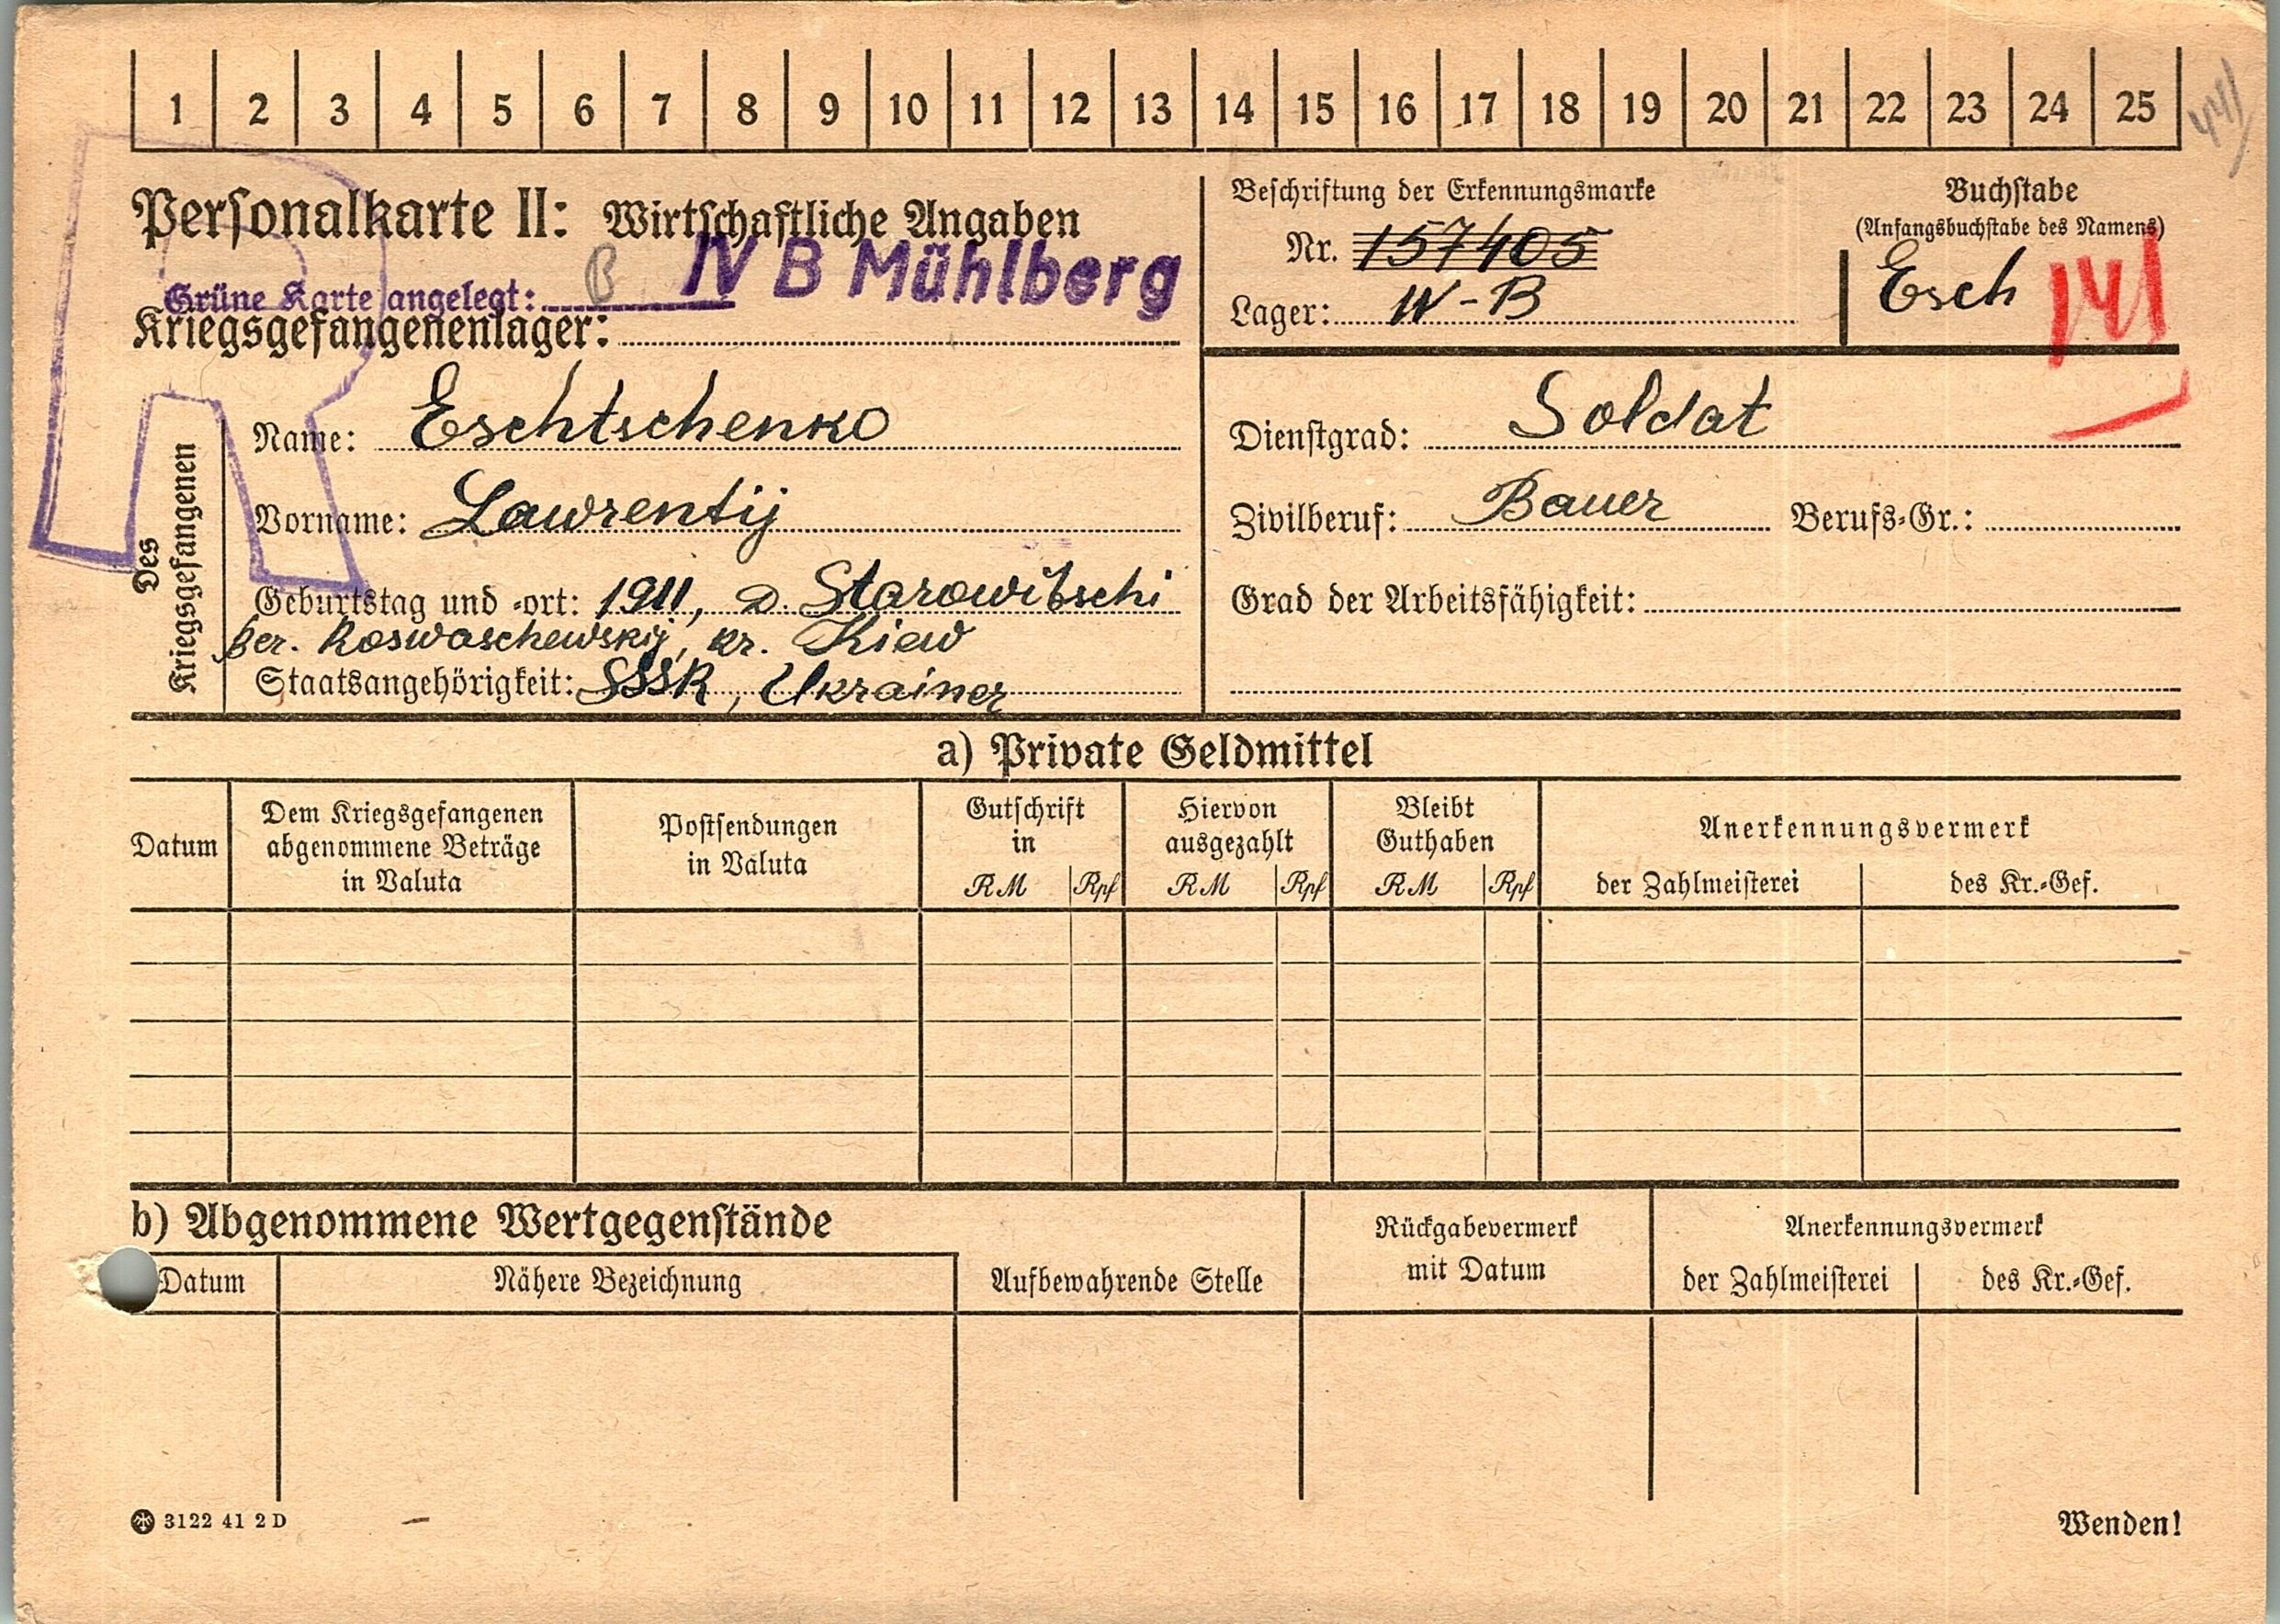 1 2 3 4 5 6 7 8 9 10 11 12 13 14 15 16 17 18 19 20 21 22 23 24 25
Personalkarte II: Wirtschaftliche Angaben
IV B Mühlberg
Grüne Karte angelegt: B
Kriegsgefangenenlager:
Beschriftung der Erkennungsmarke
Nr. 157405
Lager: IV-B
Buchstabe
(Anfangsbuchstabe des Namens)
Esch 141
Des Kriegsgefangenen
Name: Eschtschenko
Vorname: Lawrentij
Geburtstag und -ort: 1911, D. Starowitschi
Ber. Roswaschewskij, Kr. Kiew
Staatsangehörigkeit: SSSR, Ukrainer
Dienstgrad: Soldat
Zivilberuf: Bauer Berufs-Gr.:
Grad der Arbeitsfähigkeit:
a) Private Geldmittel
Datum
Dem Kriegsgefangenen
abgenommene Beträge
in Valuta
Postsendungen
in Valuta
Gutschrift
in
RM Rpf
Hiervon
ausgezahlt
RM Rpf
Bleibt
Guthaben
RM Rpf
Anerkennungsvermerk
der Zahlmeisterei des Kr.-Gef.
b) Abgenommene Wertgegenstände
Datum
Nähere Bezeichnung
Aufbewahrende Stelle
Rückgabevermerk
mit Datum
Anerkennungsvermerk
der Zahlmeisterei des Kr.-Gef.
3122 41 2 D
Wenden!